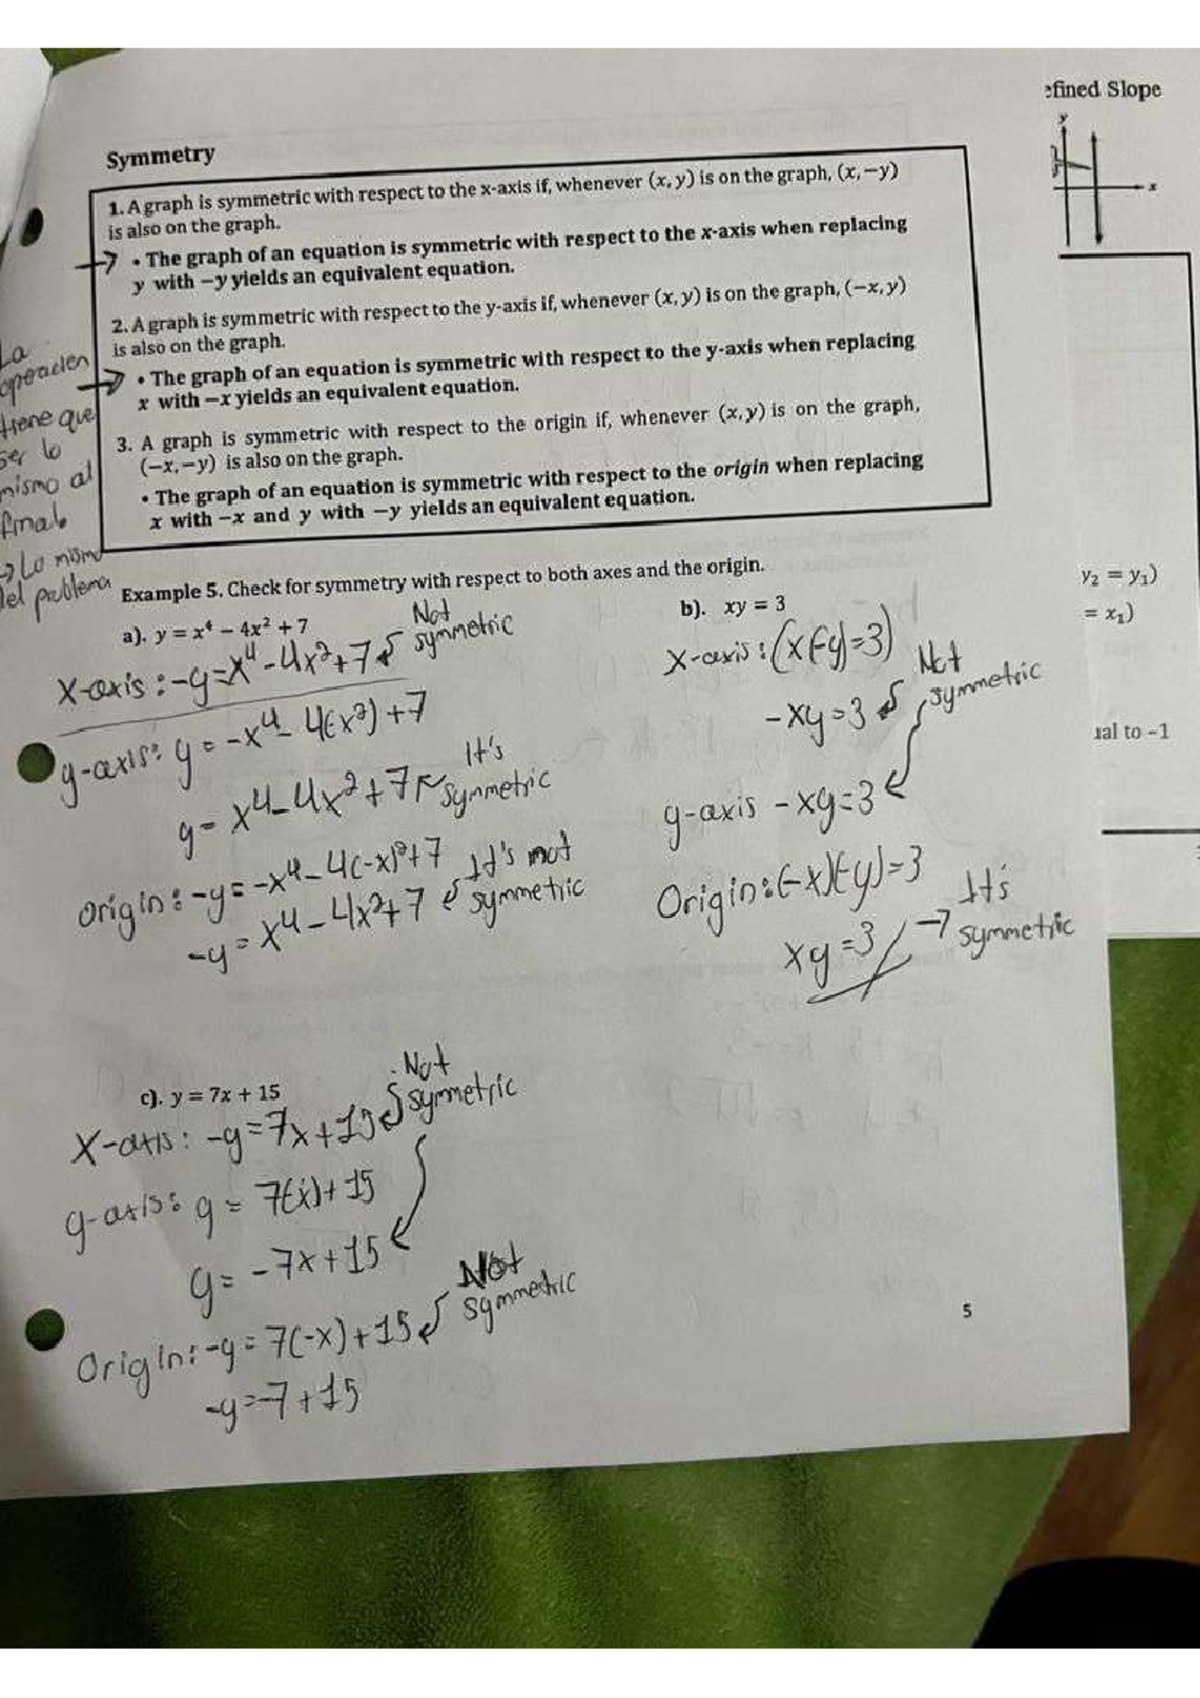 efined Slope
y
x
Symmetry
1. A graph is symmetric with respect to the x-axis if, whenever (x, y) is on the graph, (x, −y)
is also on the graph.
• The graph of an equation is symmetric with respect to the x-axis when replacing
y with −y yields an equivalent equation.
2. A graph is symmetric with respect to the y-axis if, whenever (x, y) is on the graph, (−x, y)
is also on the graph.
• The graph of an equation is symmetric with respect to the y-axis when replacing
x with −x yields an equivalent equation.
3. A graph is symmetric with respect to the origin if, whenever (x, y) is on the graph,
(−x, −y) is also on the graph.
• The graph of an equation is symmetric with respect to the origin when replacing
x with −x and y with −y yields an equivalent equation.
La
operacion
tiene que
ser lo
mismo al
final.
→ Lo mismo
del problema
y₂ = y₁)
= x₁)
ual to −1
Example 5. Check for symmetry with respect to both axes and the origin.
a). y = x⁴ − 4x² + 7
Not
symmetric
x-axis: -y=x⁴-4x²+7
y-axis: y = -x⁴- 4(x²) +7
y= x⁴-4x²+7
It's
symmetric
Origin: -y= -x⁴-4(-x)²+7
-y= x⁴-4x²+7
It's not
symmetric
b). xy = 3
x-axis: (x(-y)=3)
-xy=3
Not
symmetric
y-axis -xy=3
Origin: (-x)(-y)=3
xy=3
It's
symmetric
c). y = 7x + 15
Not
symmetric
X-axis: -y=7x+15
y-axis: y = 7(-x)+15
y= -7x+15
Origin: -y= 7(-x)+15
-y=-7+15
Not
symmetric
5